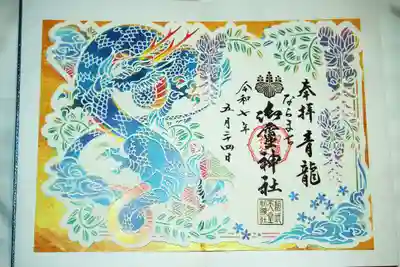 奉拝 青龍
ならまち
御霊神社
令和七年
五月二十四日